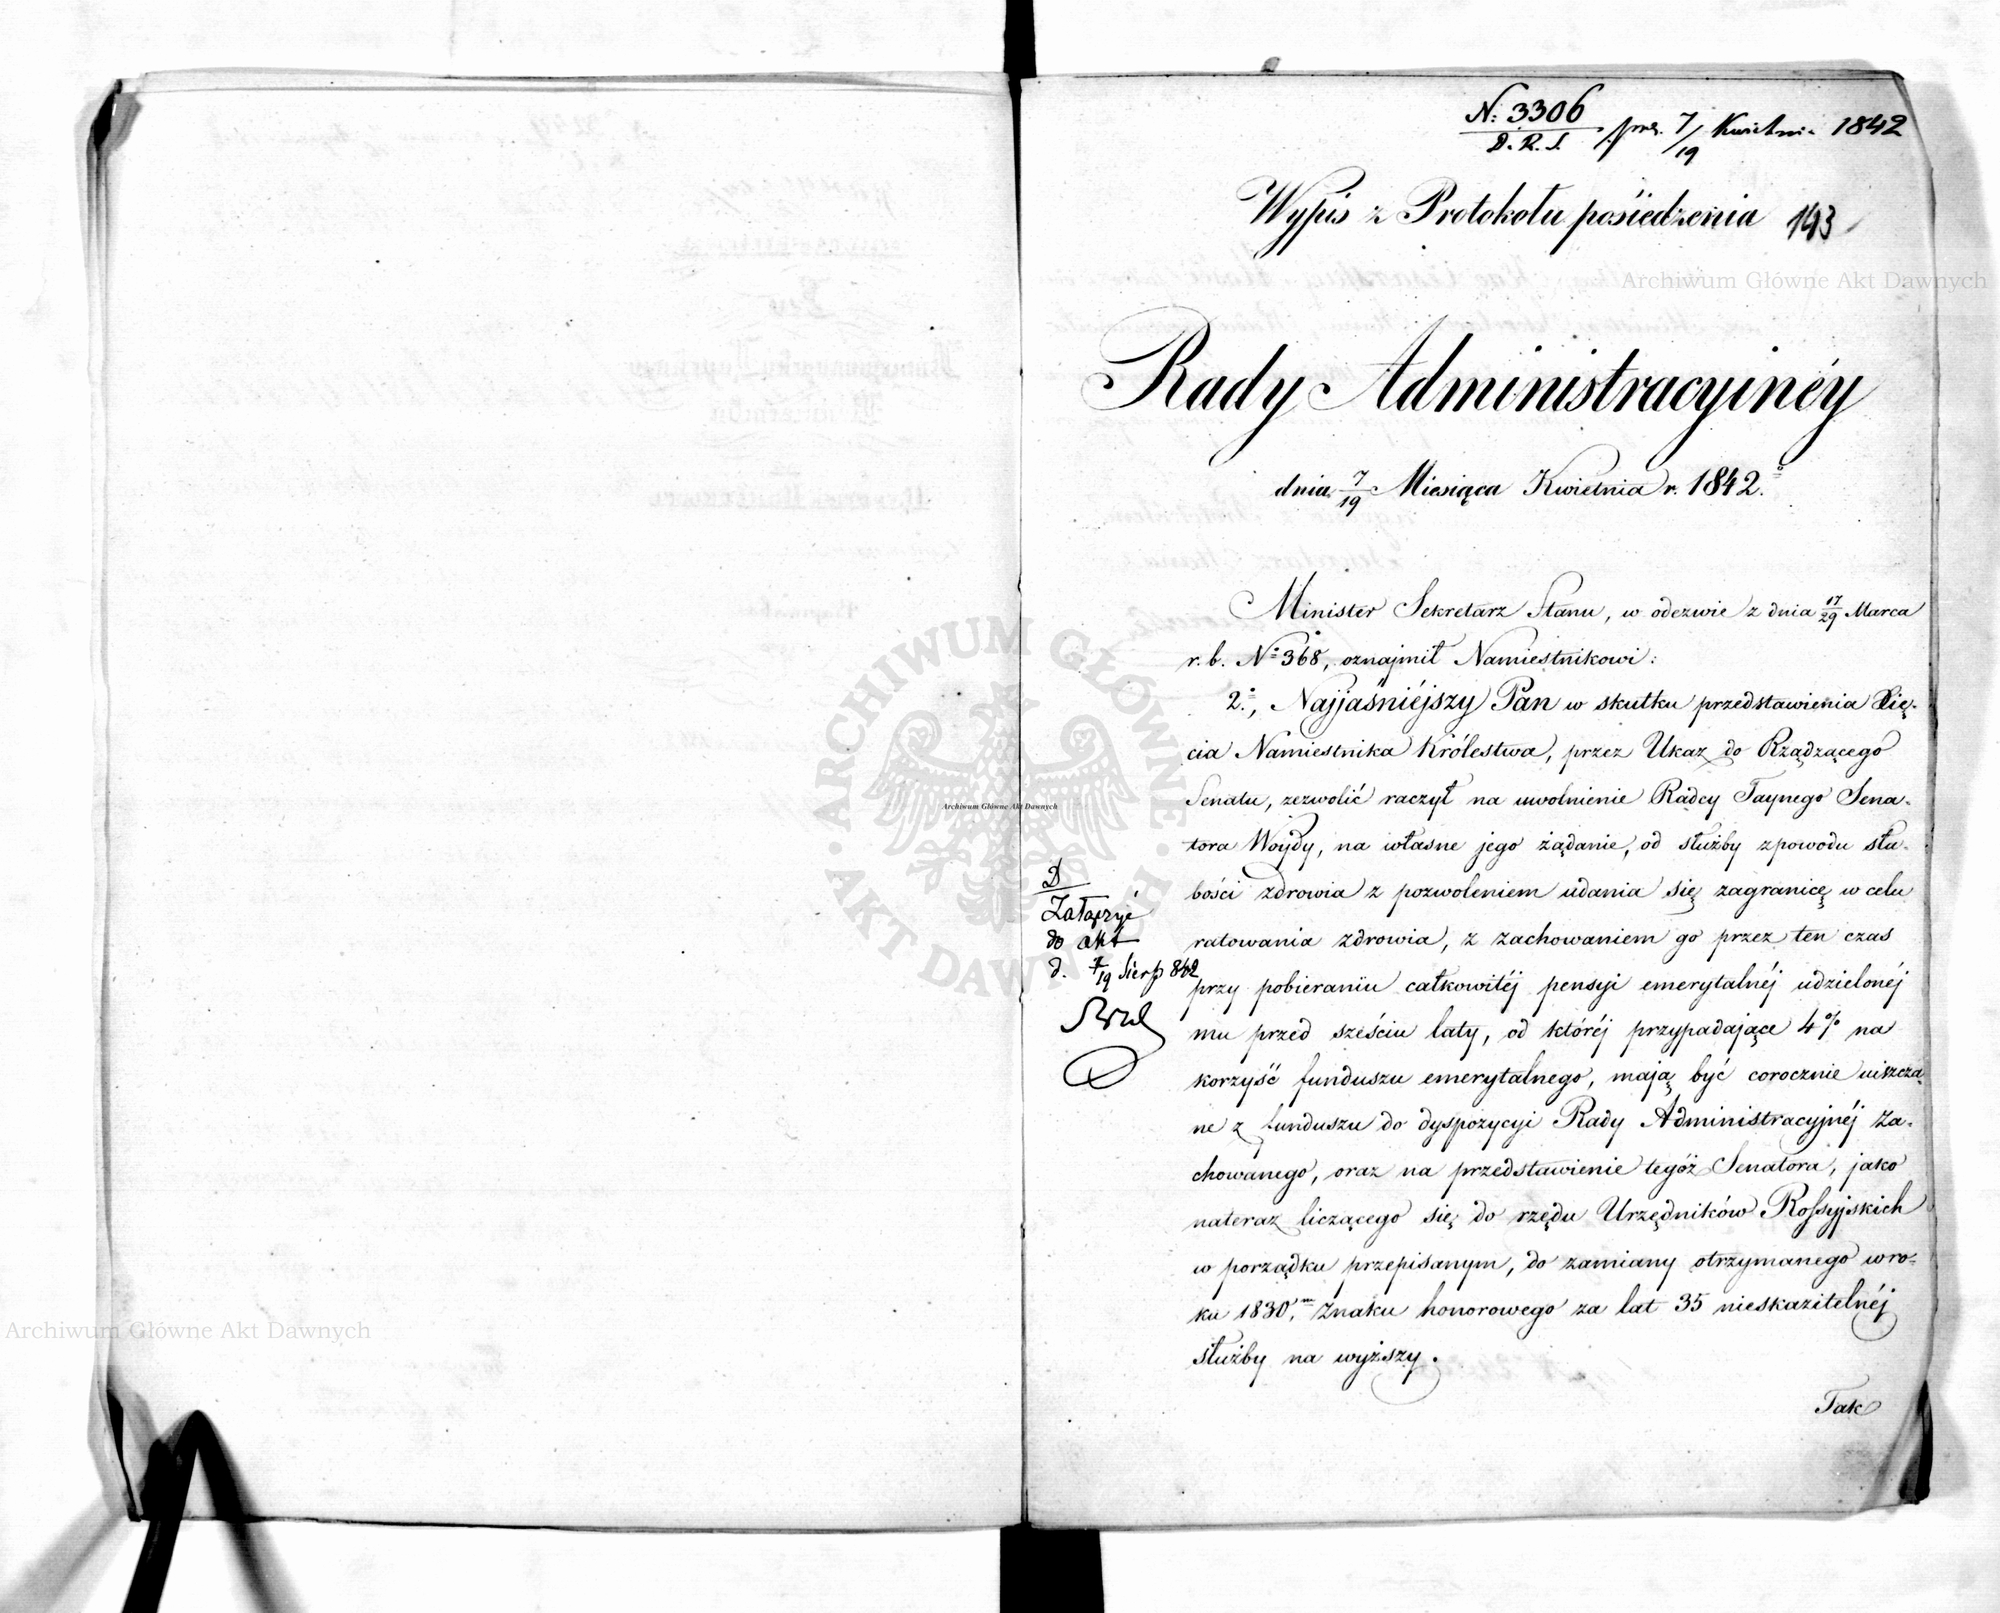 N: 3306
D. R. S.
prez. 7/19 Kwietnia 1842
Wypis z Protokołu posiedzenia
143
Archiwum Główne Akt Dawnych
Rady Administracyinéy
dnia 7/19 Miesiąca Kwietnia r. 1842.
Minister Sekretarz Stanu, w odezwie z dnia 17/29 Marca
r. b. No 368, oznajmił Namiestnikowi:
2o, Najjaśniéjszy Pan w skutku przedstawienia Xię-
cia Namiestnika Królestwa, przez Ukaz do Rządzącego
Senatu, zezwolić raczył na uwolnienie Radcy Taynego Sena-
tora Woydy, na własne jego żądanie, od służby zpowodu sła-
bości zdrowia z pozwoleniem udania się zagranicę w celu
ratowania zdrowia, z zachowaniem go przez ten czas
przy pobieraniu całkowitéj pensyi emerytalnéj udzielonéj
mu przed sześciu laty, od któréj przypadające 4% na
korzyść funduszu emerytalnego, mają być corocznie uiszcza-
ne z funduszu do dyspozycyi Rady Administracyjnéj za-
chowanego, oraz na przedstawienie tegóż Senatora, jako
nateraz liczącego się do rzędu Urzędników Rossyjskich
w porządku przepisanym, do zamiany otrzymanego w ro-
ku 1830m Znaku honorowego za lat 35 nieskazitelnéj
służby na wyższy.
Tak
D
Załączyć
do akt
d. 7/19 Sierp 842
ARCHIWUM GŁÓWNE
AKT DAWNYCH
Archiwum Główne Akt Dawnych
Archiwum Główne Akt Dawnych